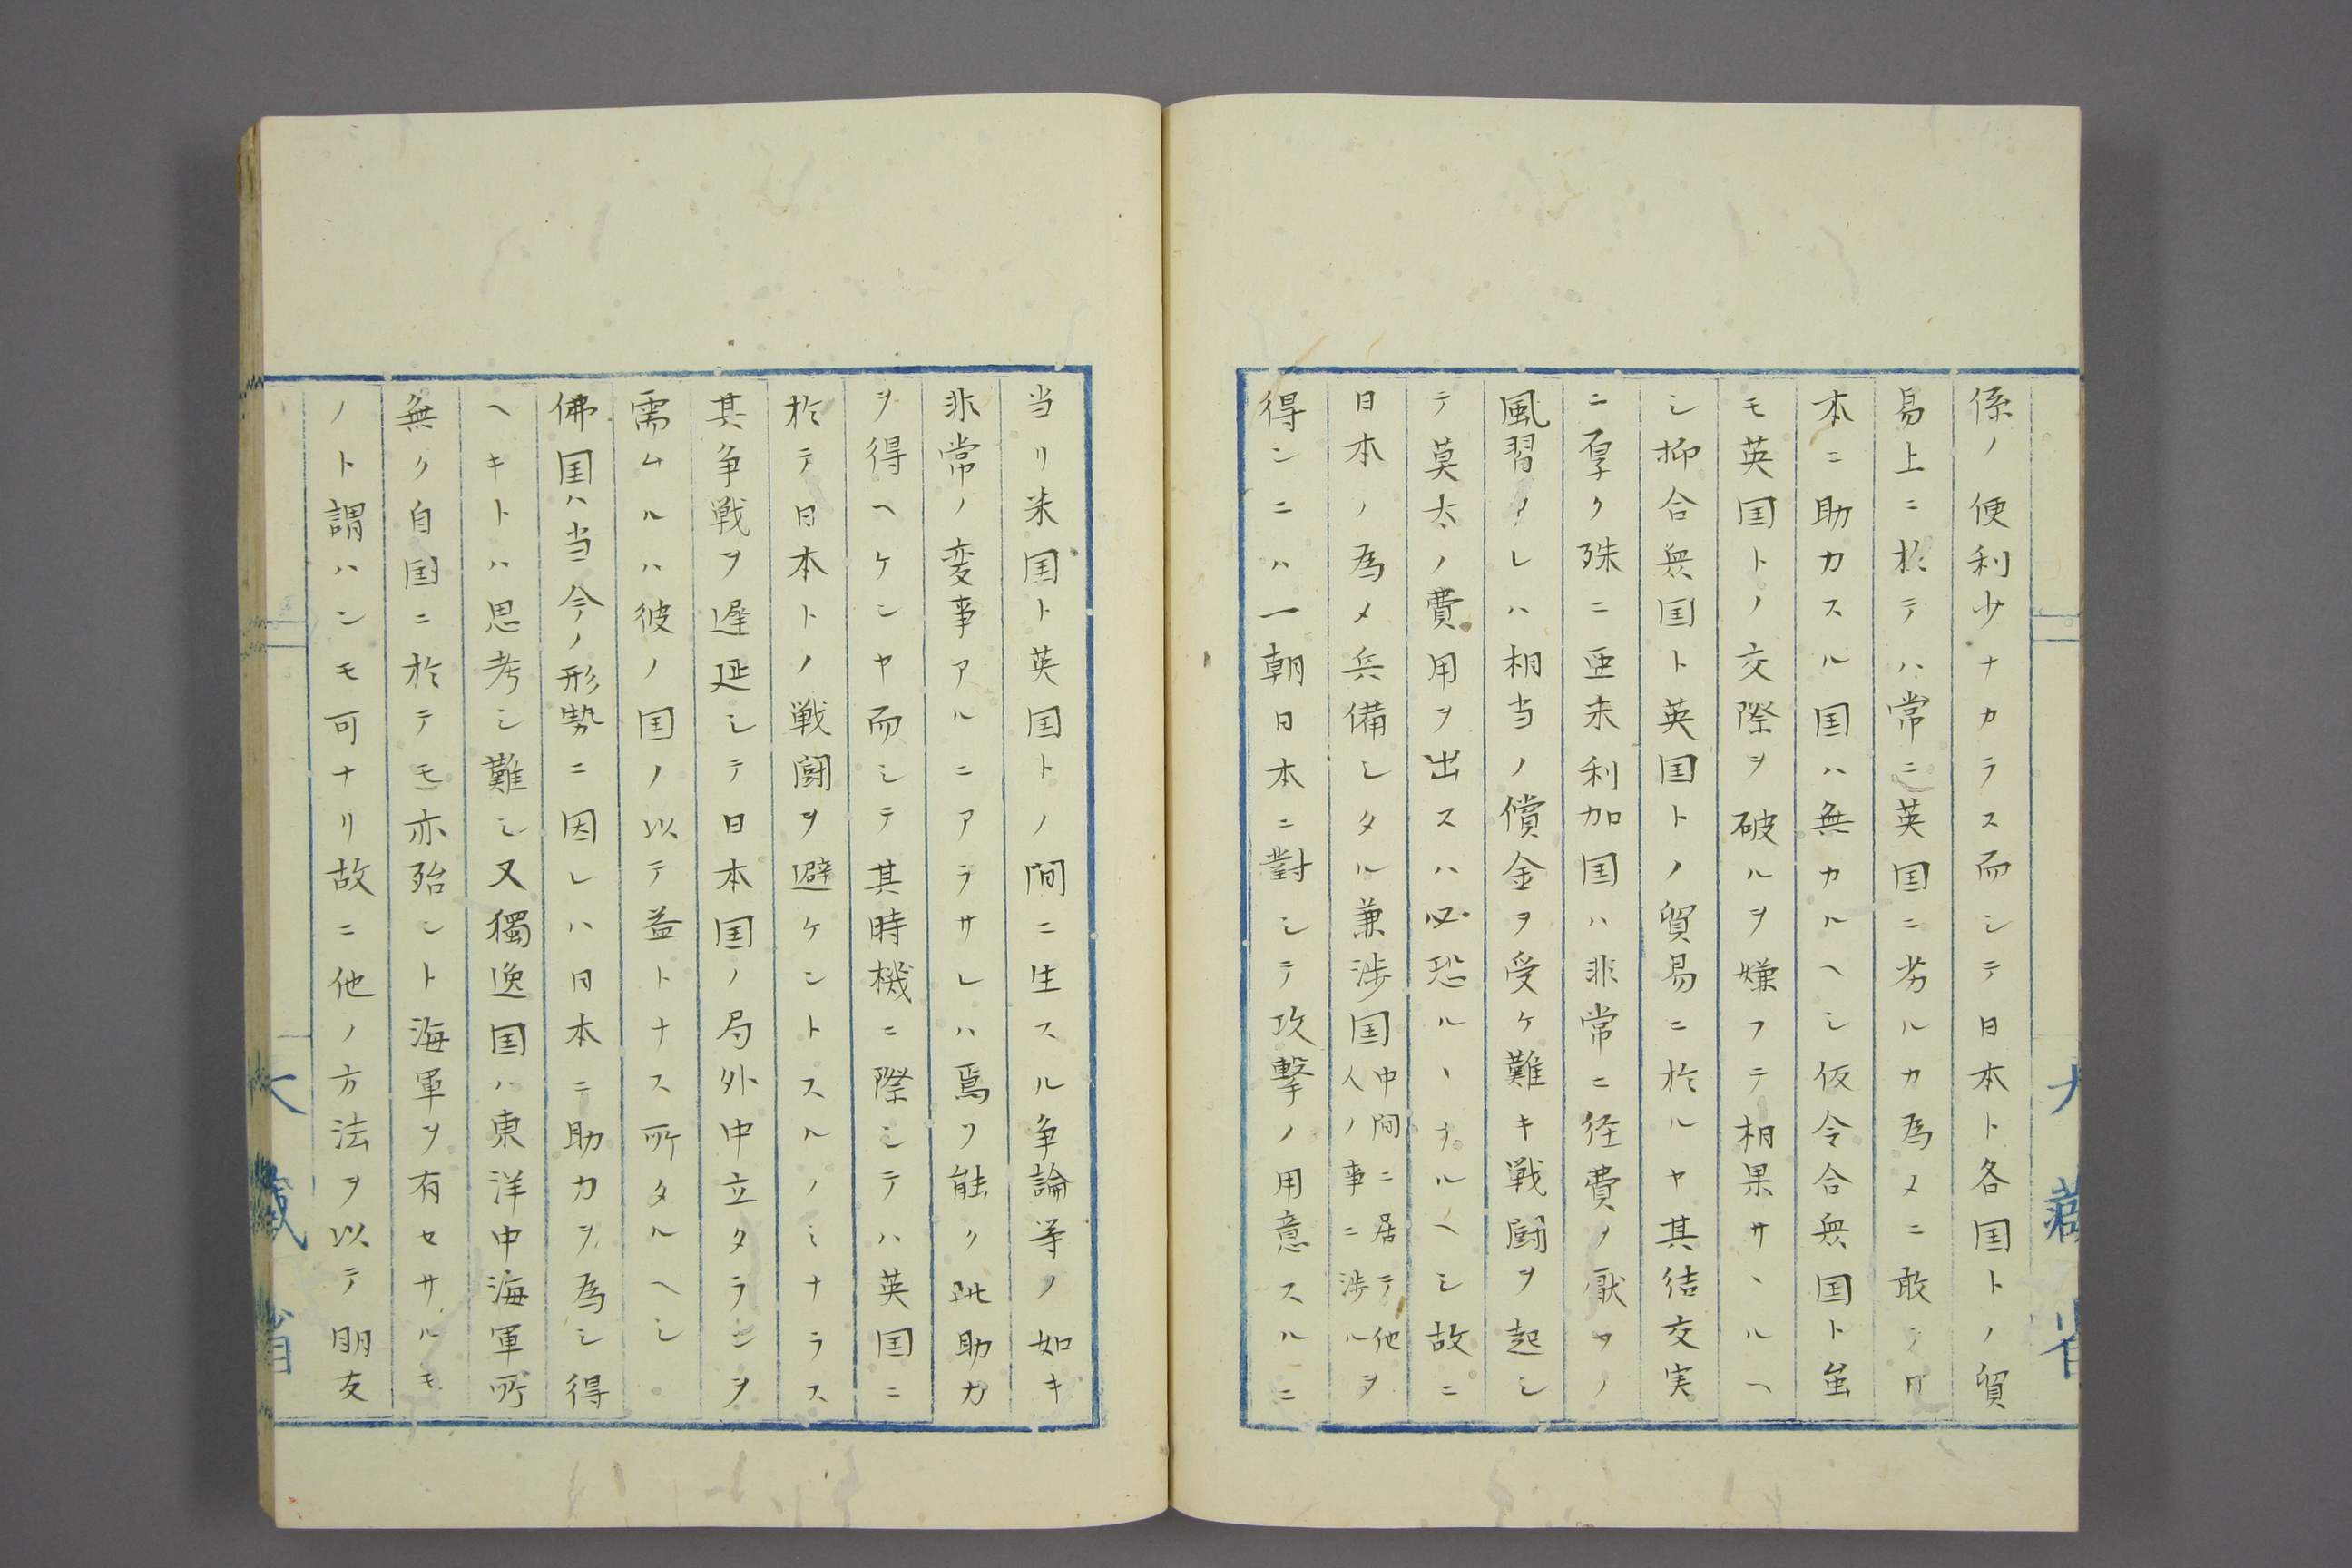 係ノ便利少ナカラス而シテ日本ト各国トノ貿
易上ニ於テハ常ニ英国ニ劣ルカ為メニ敢テ日
本ニ助力スル国ハ無カルヘシ仮令合衆国ト雖
モ英国トノ交際ヲ破ルヲ嫌フテ相果サヽルヘ
シ抑合衆国ト英国トノ貿易ニ於ルヤ其結交実
ニ厚ク殊ニ亜米利加国ハ非常ニ径費ヲ厭フノ
風習アレハ相当ノ償金ヲ受ケ難キ戦闘ヲ起シ
テ莫太ノ費用ヲ出スハ必恐ルヽナルヘシ故ニ
日本ノ為メ兵備シタル兼渉国中間ニ居テ他ヲ
人ノ事ニ渉ル
得ンニハ一朝日本ニ對シテ攻撃ノ用意スルニ
大藏省
当リ米国ト英国トノ間ニ生スル争論等ノ如キ
非常ノ変事アルニアラサレハ焉ソ能ク此助力
ヲ得ヘケンヤ而シテ其時機ニ際シテハ英国ニ
於テ日本トノ戦闘ヲ避ケントスルノミナラス
其争戦ヲ遅延シテ日本国ノ局外中立タランヲ
需ムルハ彼ノ国ノ以テ益トナス所タルヘシ
佛国ハ当今ノ形勢ニ因レハ日本ニ助力ヲ為シ得
ヘキトハ思考シ難シ又獨逸国ハ東洋中海軍所
無ク自国ニ於テモ亦殆ント海軍ヲ有セサルモ
ノト謂ハンモ可ナリ故ニ他ノ方法ヲ以テ朋友
大藏省